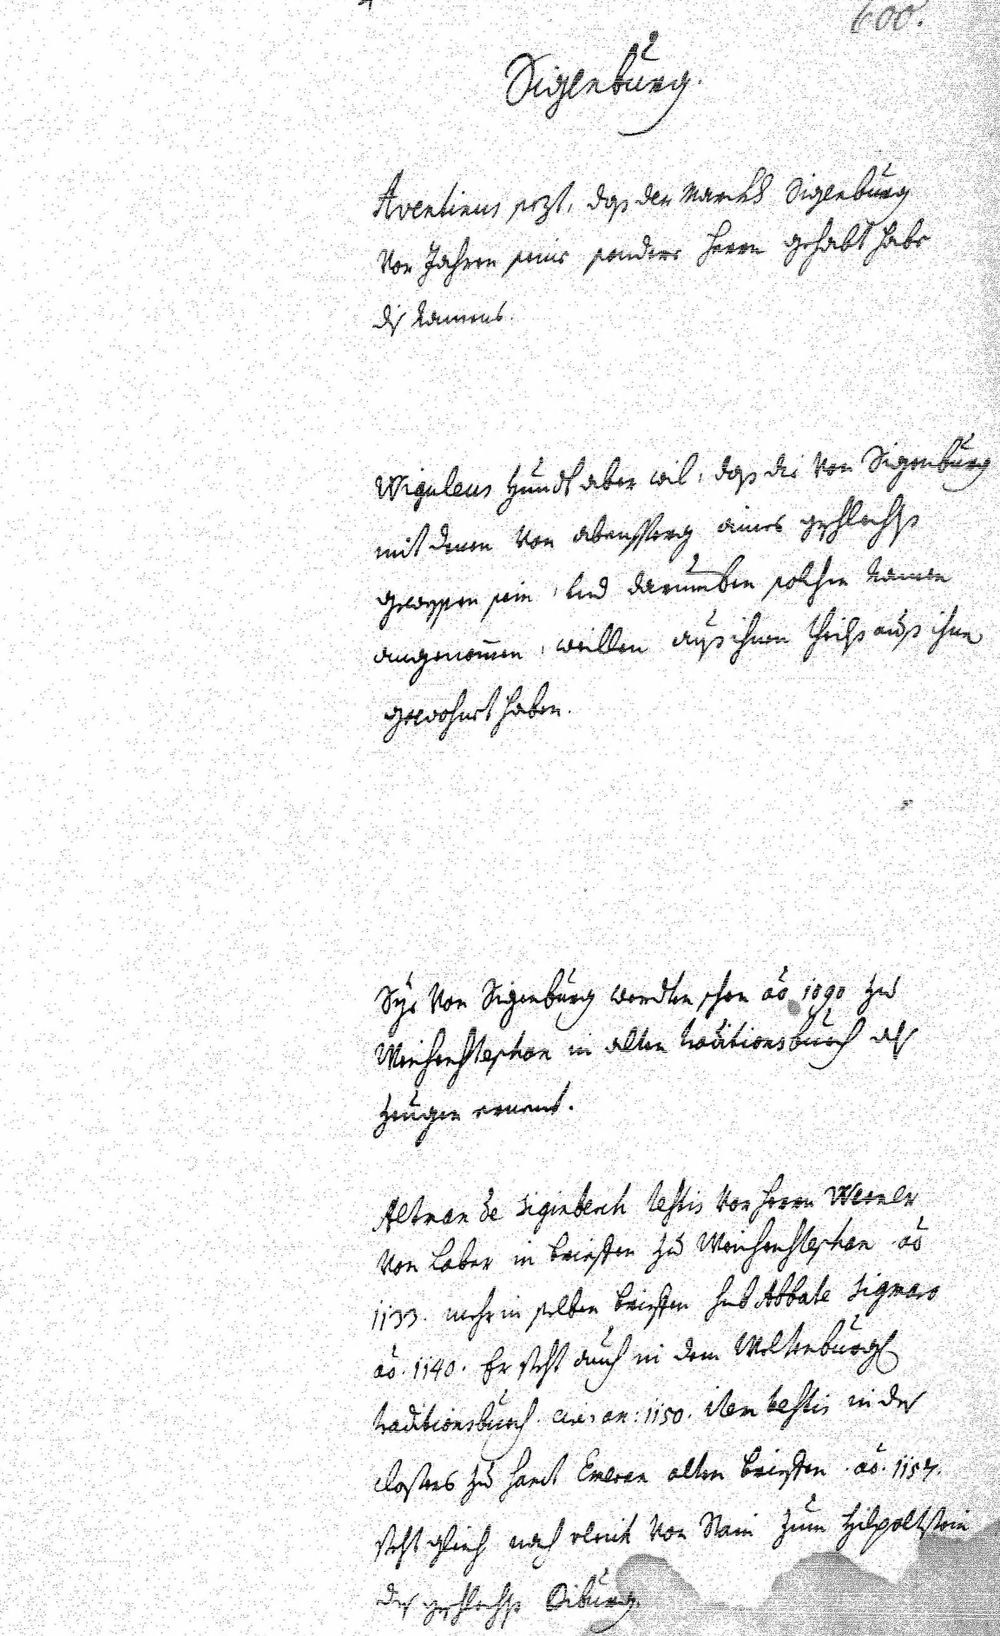 600.
Sigenburg.
Aventinus sezt, das der Marckh Sigenburg
Von Jahren seine sondere Herrn gehabt habe
diß Namens.
Wiguleus Hundt aber wil, das die Von Sigenburg
mit denen Von abensperg aines geschlechts
gewessen sein, und darumben solchen Namen
angenommen, weillen auß ihnen theilß auß ihnen
gewohnet haben.
Dise Von Sigenburg werdten schon ao 1090 zu
Weihenstephan in alten traditionsbuch als
Zeugen ernent.
Altman de Siginberch testis Von Herrn Werner
Von Laber in brieffen zu Weihenstephan ao
1133. mehr in selben brieffen sub Abbate Sigmaro
ao. 1140. Er steht auch in dem Weltenburgl
traditionsbuch. circ: an: 1150. Item testis in des
closters zu Sanct Emeran alten brieffen. ao. 1157.
steht gleich nach Ulrich Von Stain zum Hilpoltstein
des geschlechts Biburg.